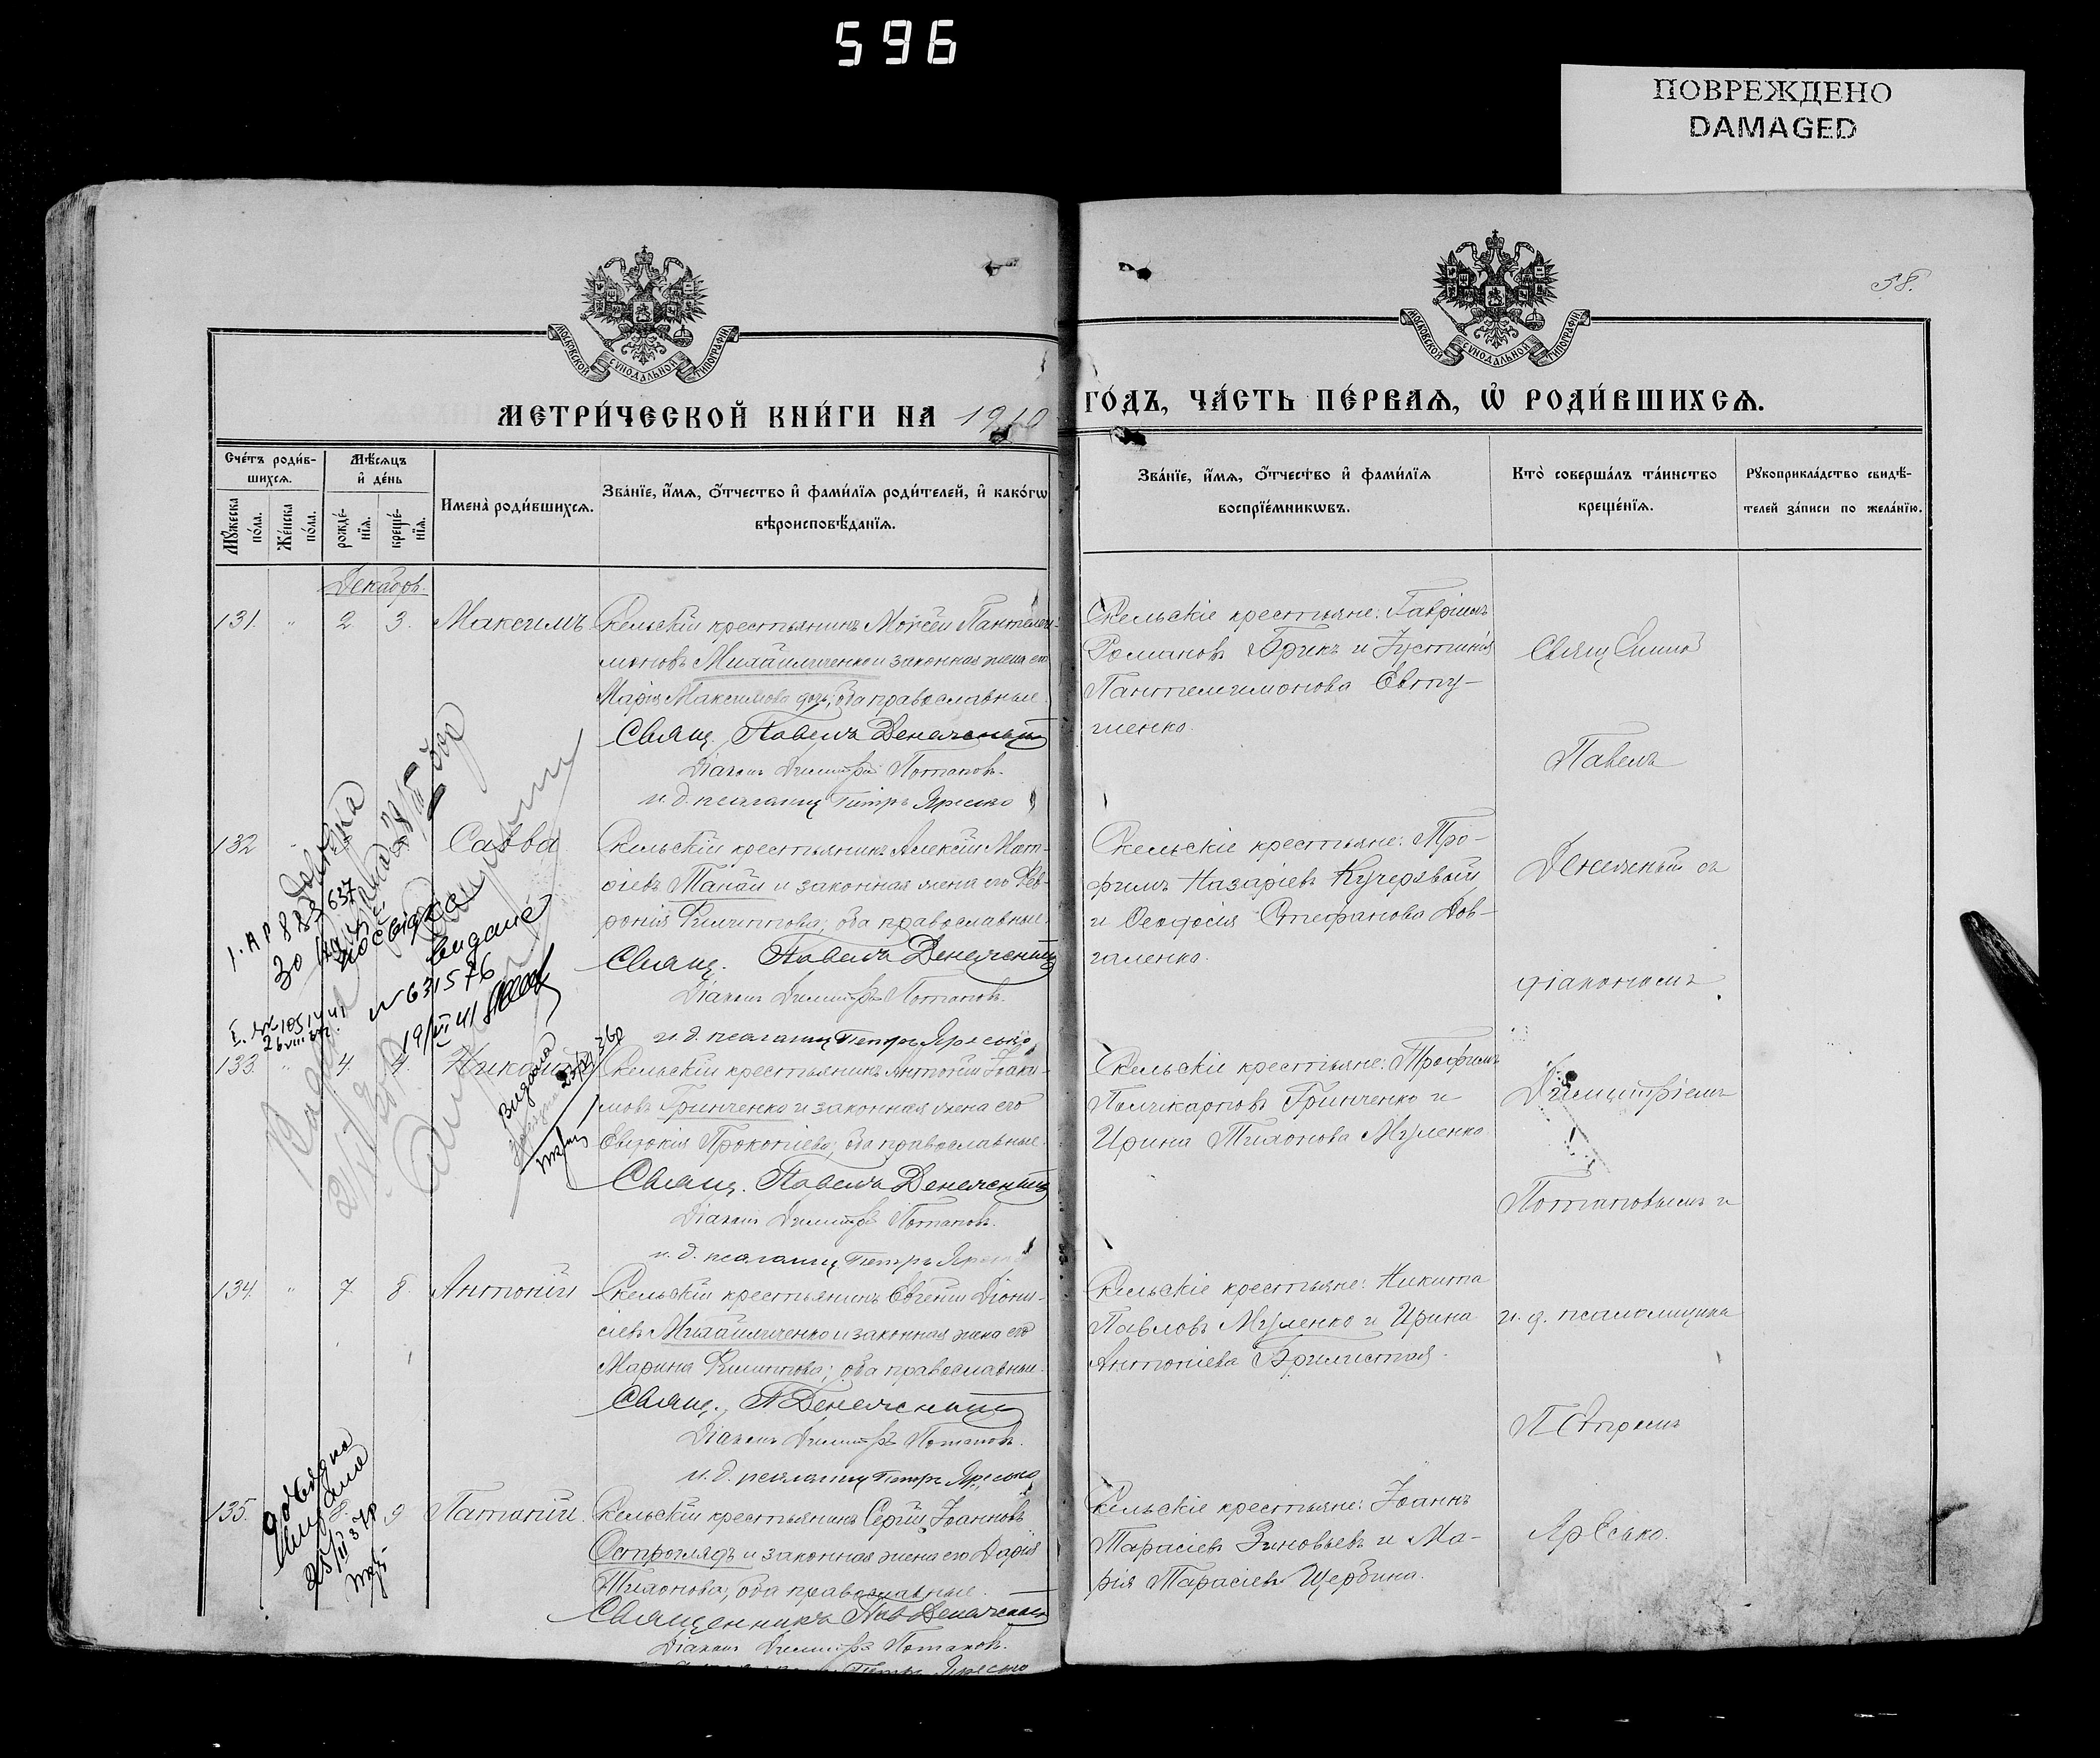 596
ПОВРЕЖДЕНО
DAMAGED
58.
МОСКОВСКОЙ СѴНОДАЛЬНОЙ ТИПОГРАФІИ
МОСКОВСКОЙ СѴНОДАЛЬНОЙ ТИПОГРАФІИ
МЕТРИ́ЧЕСКОЙ КНИ́ГИ НА 1910
ГО́ДЪ, ЧА́СТЬ ПЕ́РВАѦ, Ѡ҆ РОДИ́ВШИХСѦ.
Сче́тъ роди́в-
шихсѧ.
Мꙋ́жеска по́ла.
Же́нска по́ла.
Мѣ́сѧцъ
и҆ де́нь
рожде́-
нїѧ.
креще́-
нїѧ.
Имена̀ роди́вшихсѧ.
Зва́нїе, и҆́мѧ, ѻ҆́тчество и҆ фами́лїѧ роди́телей, и҆ како́гѡ
вѣроисповѣ́данїѧ.
Зва́нїе, и҆́мѧ, ѻ҆́тчество и҆ фами́лїѧ
воспрїе́мникѡвъ.
Кто̀ соверша́лъ та́инство
креще́нїѧ.
Рꙋкоприкла́дство свидѣ́-
телей за́писи по жела́нїю.
Декабрь.
131. " 2. 3. Максимъ
Скельскій крестьянинъ Моѵсей Пантелеи-
моновъ Михайличенко и законная жена его
Марія Максимова, оба православные.
Свящ. Павелъ Денежный
Діаконъ Димитрій Потаповъ.
и. д. псаломщ. Петръ Яресько
Скельскіе крестьяне: Гавріилъ
Романовъ Брикъ и Іустинія
Пантелеимонова Евту-
шенко.
132 Савва
Скельскій крестьянинъ Алексій Мат-
ѳіевъ Панай и законная жена его Фев-
ронія Филиппова; оба православные.
Свящ. Павелъ Денежный
Діаконъ Димитрій Потаповъ.
и. д. псаломщ. Петръ Яресько
Скельскіе крестьяне: Тро-
фимъ Назаріевъ Кучерявый
и Ѳеодосія Стефанова Дов-
галенко.
133. " 4. 4. Николай
Скельскій крестьянинъ Антоній Іоаки-
мовъ Гринченко и законная жена его
Евдокія Прокопіева; оба православные.
Свящ. Павелъ Денежный
Діаконъ Димитрій Потаповъ.
и. д. псаломщ. Петръ Яресько
Скельскіе крестьяне: Трофимъ
Поликарповъ Гринченко и
Ирина Тихонова Муленко
134. " 7. 8. Антоній
Скельскій крестьянинъ Евгеній Діони-
сіевъ Михайличенко и законная жена его
Марина Филиппова; оба православные.
Свящ. П Денежный
Діаконъ Димитрій Потаповъ.
и. д. псаломщ. Петръ Яресько
Скельскіе крестьяне: Никита
Павловъ Муленко и Ирина
Антоніева
135. 8. 9 Патапій.
Скельскій крестьянинъ Сергій Іоанновъ
Остроглядъ и законная жена его Дарія
Тихонова; оба православные.
Священникъ Пав Денежный
Діаконъ Димитрій Потаповъ.
Петръ Яресько
Скельскіе крестьяне: Іоаннъ
Тарасіевъ Зиновьевъ и Ма-
рія Тарасіева Щербина.
Павелъ
Денежный съ
діакономъ
Димитріемъ
Потаповымъ и
и. д. псаломщика
Петромъ
Яресько.
довідка
видане
№ 631576
19/VI 41
Видана
довідка
видана